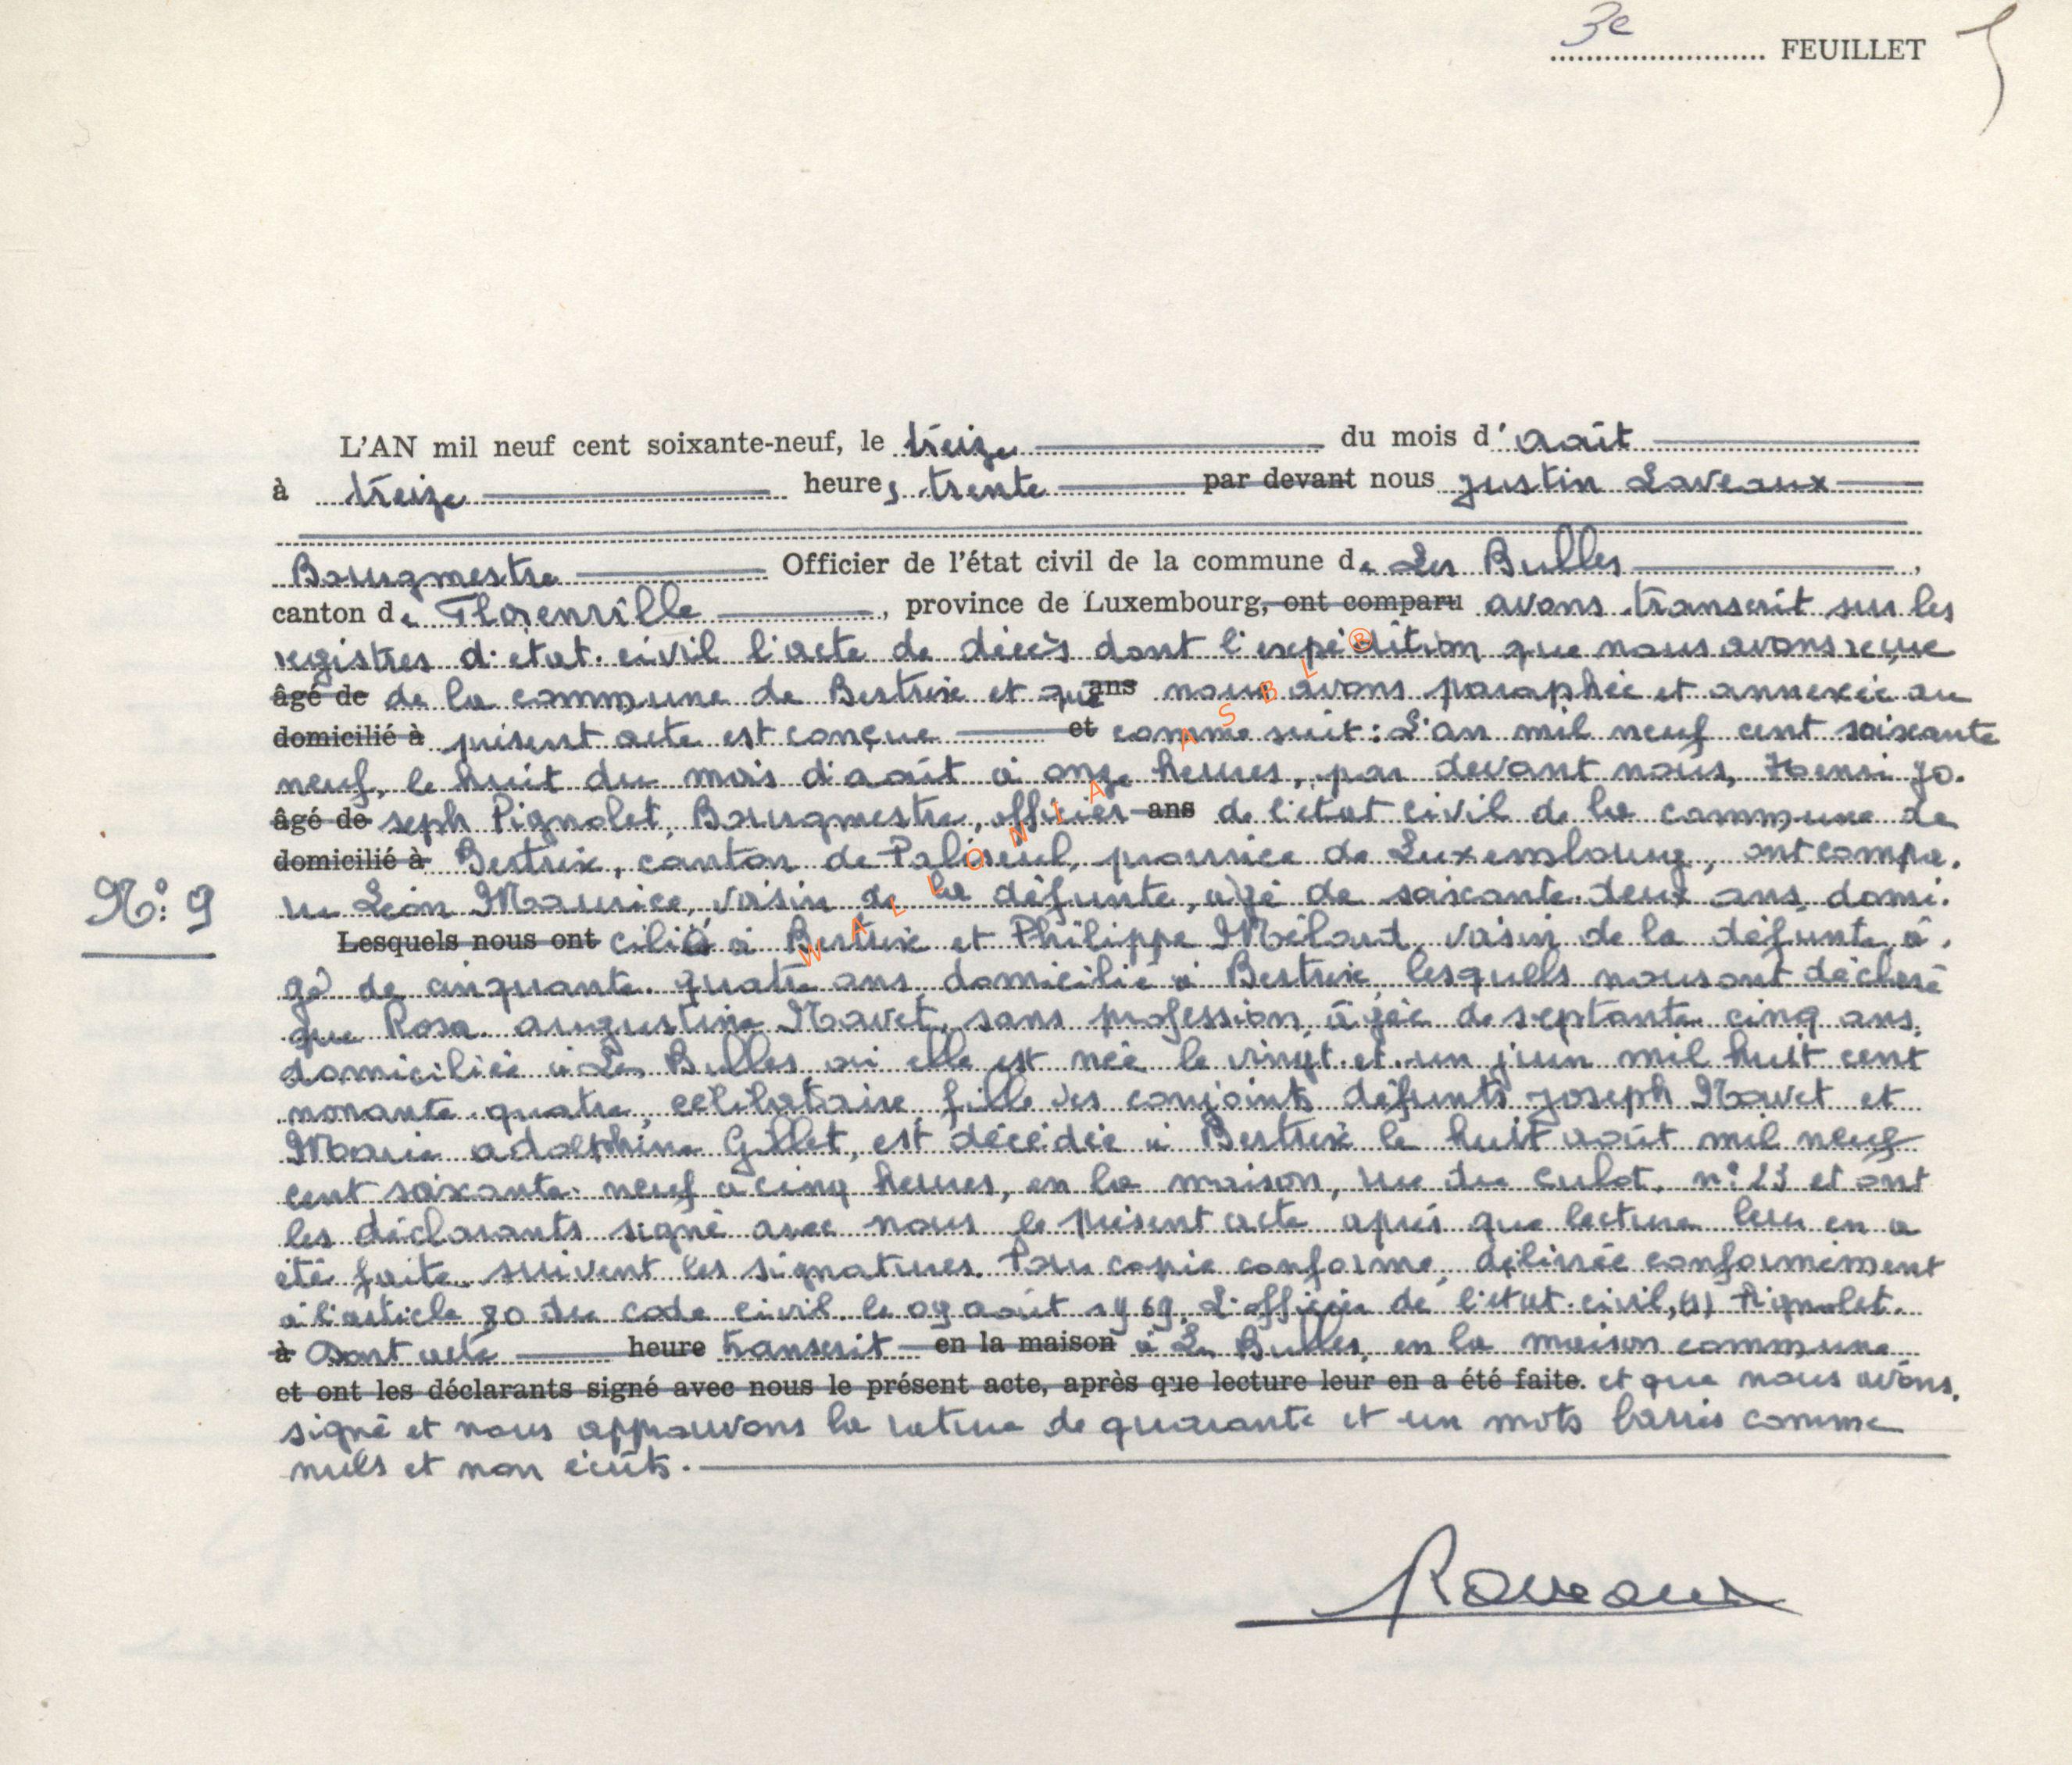 3e FEUILLET
L'AN mil neuf cent soixante-neuf, le treize du mois d'août
à treize heures trente par devant nous Justin Laveaux
Bourgmestre Officier de l'état civil de la commune de Les Bulles,
canton de Florenville, province de Luxembourg, ont comparu avons transcrit sur les
registres d'état-civil l'acte de décès dont l'expédition que nous avons reçue
âgé de de la commune de Bertrix et que ans nous avons paraphée et annexée au
domicilié à présent acte est conçue et comme suit : L'an mil neuf cent soixante
neuf, le huit du mois d'août à onze heures, par devant nous, Henri Jo-
âgé de seph Pignolet, Bourgmestre, officier ans de l'état civil de la commune de
domicilié à Bertrix, canton de Paliseul, province de Luxembourg, ont compa-
N° 9
ru Léon Maurice, voisin de la défunte, âgé de soixante-deux ans, domi-
Lesquels nous ont cilié à Bertrix et Philippe Mélard, voisin de la défunte, â-
gé de cinquante-quatre ans, domicilié à Bertrix, lesquels nous ont déclaré
que Rosa Augustine Navet, sans profession, âgée de septante-cinq ans,
domiciliée à Les Bulles où elle est née le vingt-et-un juin mil huit cent
nonante-quatre, célibataire, fille des conjoints défunts Joseph Navet et
Marie Adolphine Gillet, est décédée à Bertrix le huit août mil neuf
cent soixante-neuf à cinq heures, en la maison, rue du Culot, n° 23 et ont
les déclarants signé avec nous le présent acte après que lecture leur en a
été faite. suivent les signatures. Pour copie conforme, délivrée conformément
à l'article 80 du code civil. le 09 août 1969. L'officier de l'état-civil, (s) Pignolet.
à Dont acte heure transcrit en la maison à Les Bulles, en la maison commune
et ont les déclarants signé avec nous le présent acte, après que lecture leur en a été faite. et que nous avons.
signé et nous approuvons la rature de quarante et un mots barrés comme
nuls et non écrits.
Laveaux
WALLONIA ASBL ®